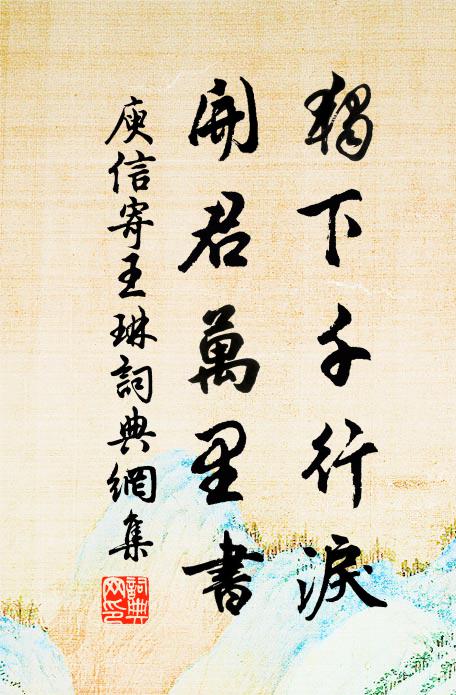 獨下千行淚
開君萬里書
庾信寄王琳詞典網集
詞典網印